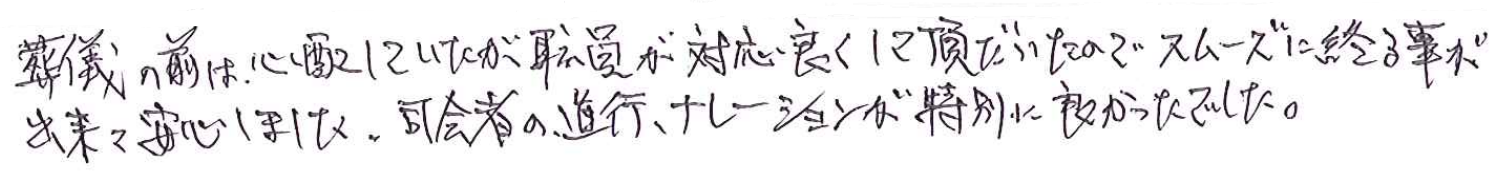 葬儀の前は、心配していたが職員が対応良くして頂だいたのでスムーズに終る事が
出来て安心しました。司会者の進行、ナレーションが特別に良かったでした。